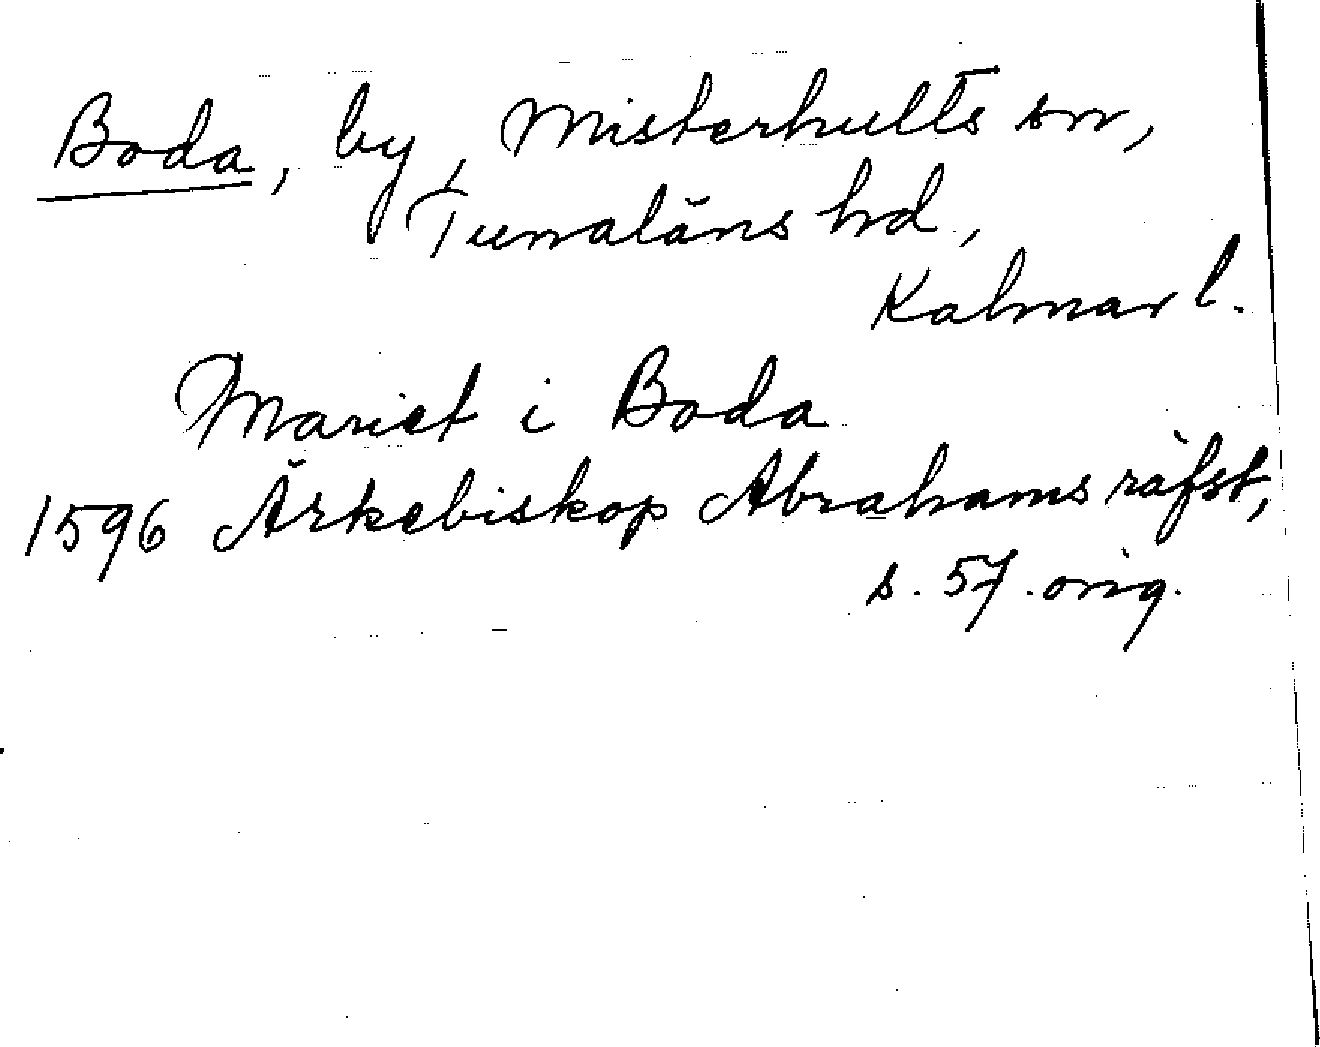 Boda, by, Misterhults sn,
Tunaläns hd,
Kalmar l.
Mariet i Boda
1596 Ärkebiskop Abrahams räfst,
s. 57. orig.